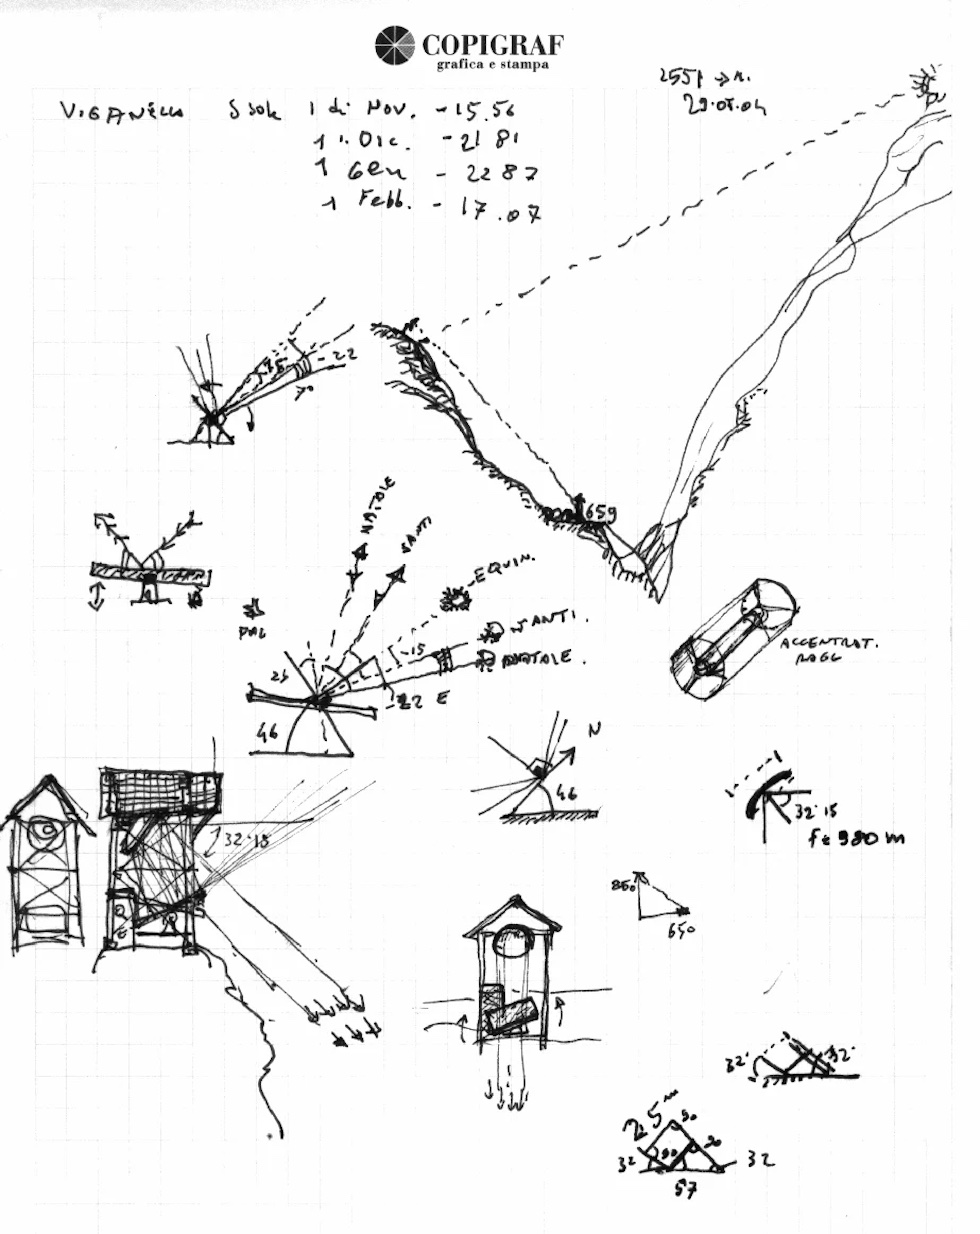 COPIGRAF
grafica e stampa
2551 → m.
29.05.04
VIGANELLA S sole 1 di Nov. -15.56
1 " Dic. -21 81
1 Gen - 22 87
1 Febb. - 17.07
15
-22
70
659
NATALE
SANTI
EQUIN.
SANTI.
NATALE.
-15
-22 E
23
46
ACCENTRAT.
RAGG
N
46
32°15
32°15
f = 980 m
850
650
32°
32°
25 m
90
90
90
32
32
57